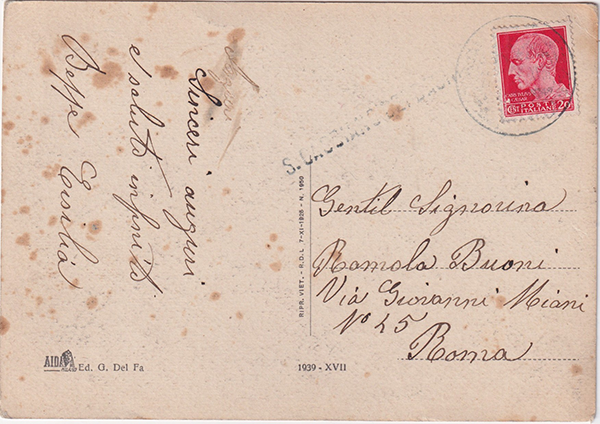 Sinceri auguri
e saluti infiniti
Beppe Ersilia
S. GAGGIANO
POSTE
ITALIANE
CENT 20
Gentil Signorina
Romola Buoni
Via Giovanni Miani
N° 45
Roma
RIPR. VIET. - R.D.L. 7-XI-1925 - N. 1950
AIDA Ed. G. Del Fa
1939 - XVII